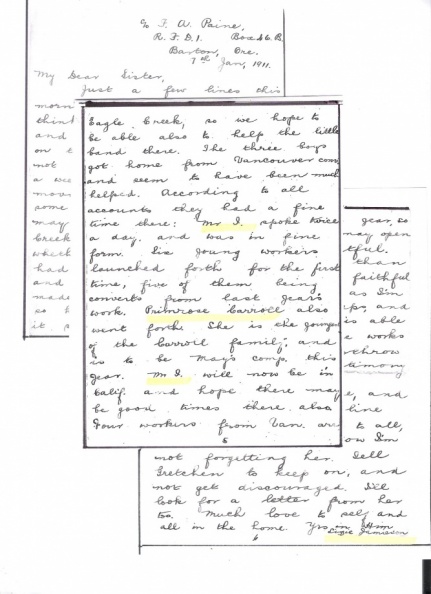 c/o F. A. Paine,
R. F. D. 1. Box 46 B.
Barton, Ore.
7th Jan, 1911.
My Dear Sister,
Just a few lines this
morn
think
and
on t
not
a we
move
some
may
Creek
which
had
and
made
so h
it p
Eagle Creek, so we hope to
be able also to help the little
band there. The three boys
got home from Vancouver conv
and seem to have been much
helped. According to all
accounts they had a fine
time there: Mr I. spoke twice
a day, and was in fine
form. Six young workers
launched forth for the first
time, five of them being
converts from last year's
work. Primrose Carroll also
went forth. She is the youngest
of the Carroll family, and
is to be May's comp. this
year. Mr I. will now be in
Calif. and hope there may
be good times there also
Four workers from Van. are
5
gear, so
may open
tful.
then
faithful
as I'm
ps, and
is able
e works
rthrow
timony
e, and
line
to all,
ow I'm
not forgetting her. Tell
Gretchen to keep on, and
not get discouraged. I'll
look for a letter from her
too. Much love to self and
all in the home Yrs in Him
Lizzie Jamieson
6